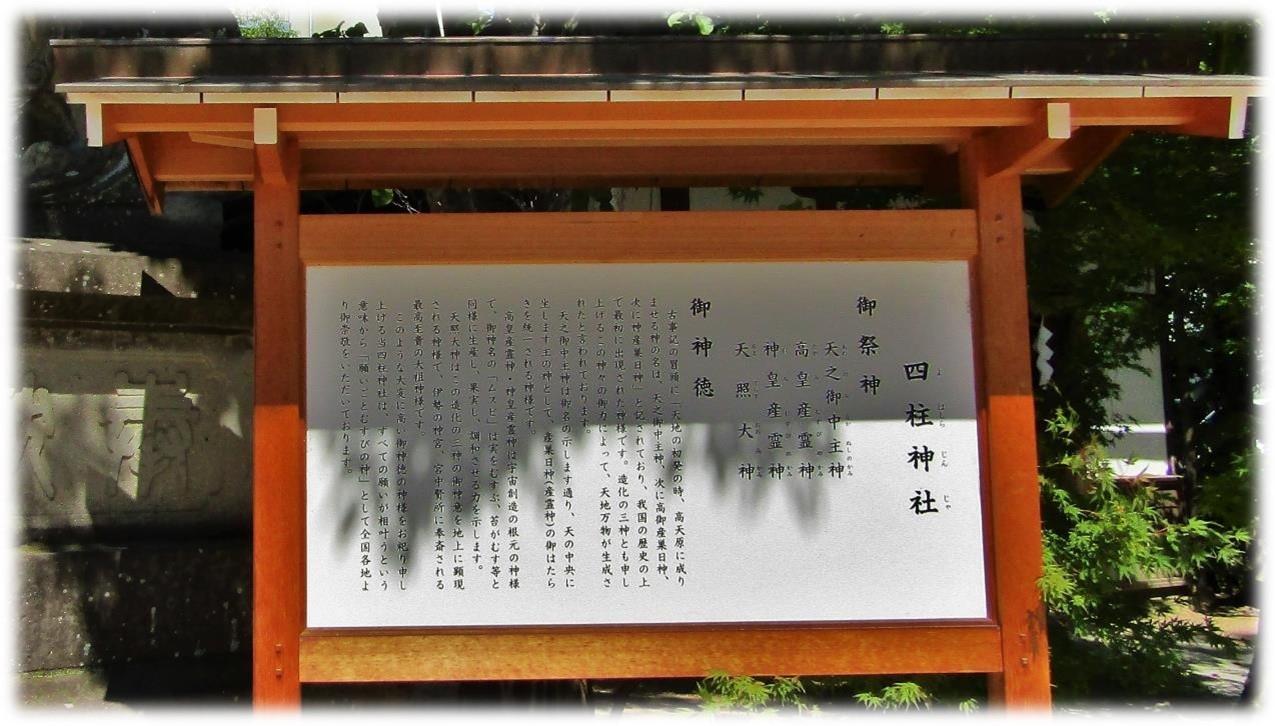 四柱神社
よ はしら じん じゃ
御祭神
天之御中主神
高皇産霊神
神皇産霊神
天照大神
御神徳
古事記の冒頭に「天地の初発の時、高天原に成り
ませる神の名は、天之御中主神、次に高御産巣日神、
次に神産巣日神」と記されており、我国の歴史の上
で最初に出現された神様です。造化の三神とも申し
上げるこの神々の御力によって、天地万物が生成さ
れたと言われております。
天之御中主神は御名の示します通り、天の中央に
坐します主の神として、産巣日神(産霊神)の御はたら
きを統一される神様です。
高皇産霊神・神皇産霊神は宇宙創造の根元の神様
で、御神名の「ムスビ」は実をむすぶ、苔がむす等と
同様に生産し、果実し、調和させる力を示します。
天照大神はこの造化の三神の御神意を地上に顕現
される神様で、伊勢の神宮、宮中賢所に奉斎される
最高至貴の大祖神様です。
このような大変に高い御神徳の神様をお祀り申し
上げる当四柱神社は、すべての願いが相叶うという
意味から「願いごとむすびの神」として全国各地よ
り御崇敬をいただいております。